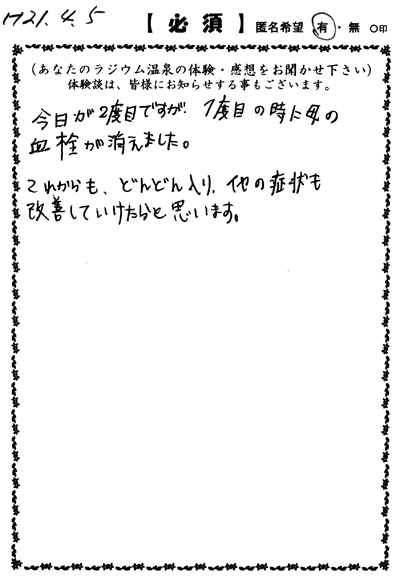 H21.4.5
【必須】 匿名希望 有・無 ○印
(あなたのラジウム温泉の体験・感想をお聞かせ下さい)
体験談は、皆様にお知らせする事もございます。
今日が2度目ですが、1度目の時に母の
血栓が消えました。
これからも、どんどん入り、他の症状も
改善していけたらと思います。